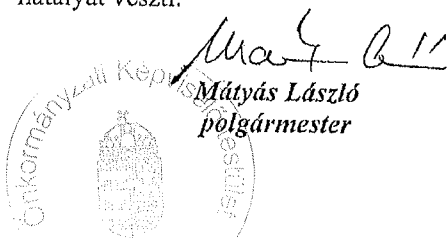 hatályát veszti.
Mátyás László
polgármester
Önkormányzati Képviselőtestület